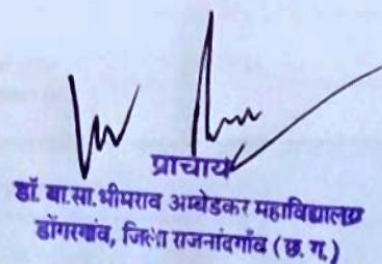 प्राचार्य
डॉ. बा.सा.भीमराव अम्बेडकर महाविद्यालय
डोंगरगांव, जिला राजनांदगाँव (छ. ग.)